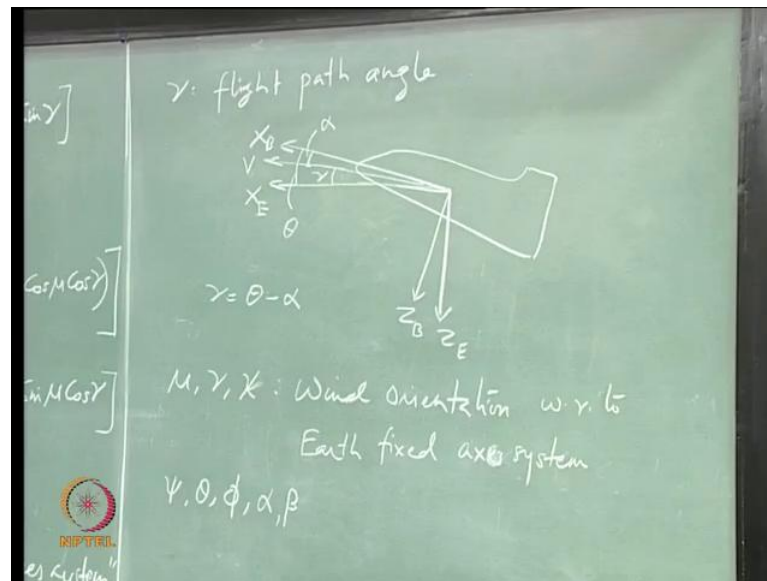 sin γ]
Cos μ Cos γ)]
Sin μ Cos γ]
es system"
γ: flight path angle
X_B
α
V
γ
X_E
θ
γ = θ - α
Z_B
Z_E
μ, γ, χ : Wind orientation w.r. to
Earth fixed axes system
ψ, θ, φ, α, β
NPTEL